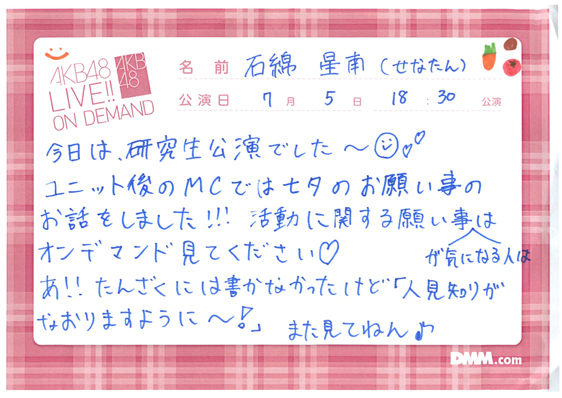 AKB48
LIVE!!
ON DEMAND
AKB
48
名 前 石綿 星南 (せなたん)
公演日 7 月 5 日 18 : 30 公演
今日は、研究生公演でした〜☺♡♡
ユニット後のMCでは七夕のお願い事の
お話をしました!!! 活動に関する願い事は
オンデマンド見てください♡ が気になる人は
あ!! たんざくには書かなかったけど「人見知りが
なおりますように〜!」 また見てねん♪
DMM.com